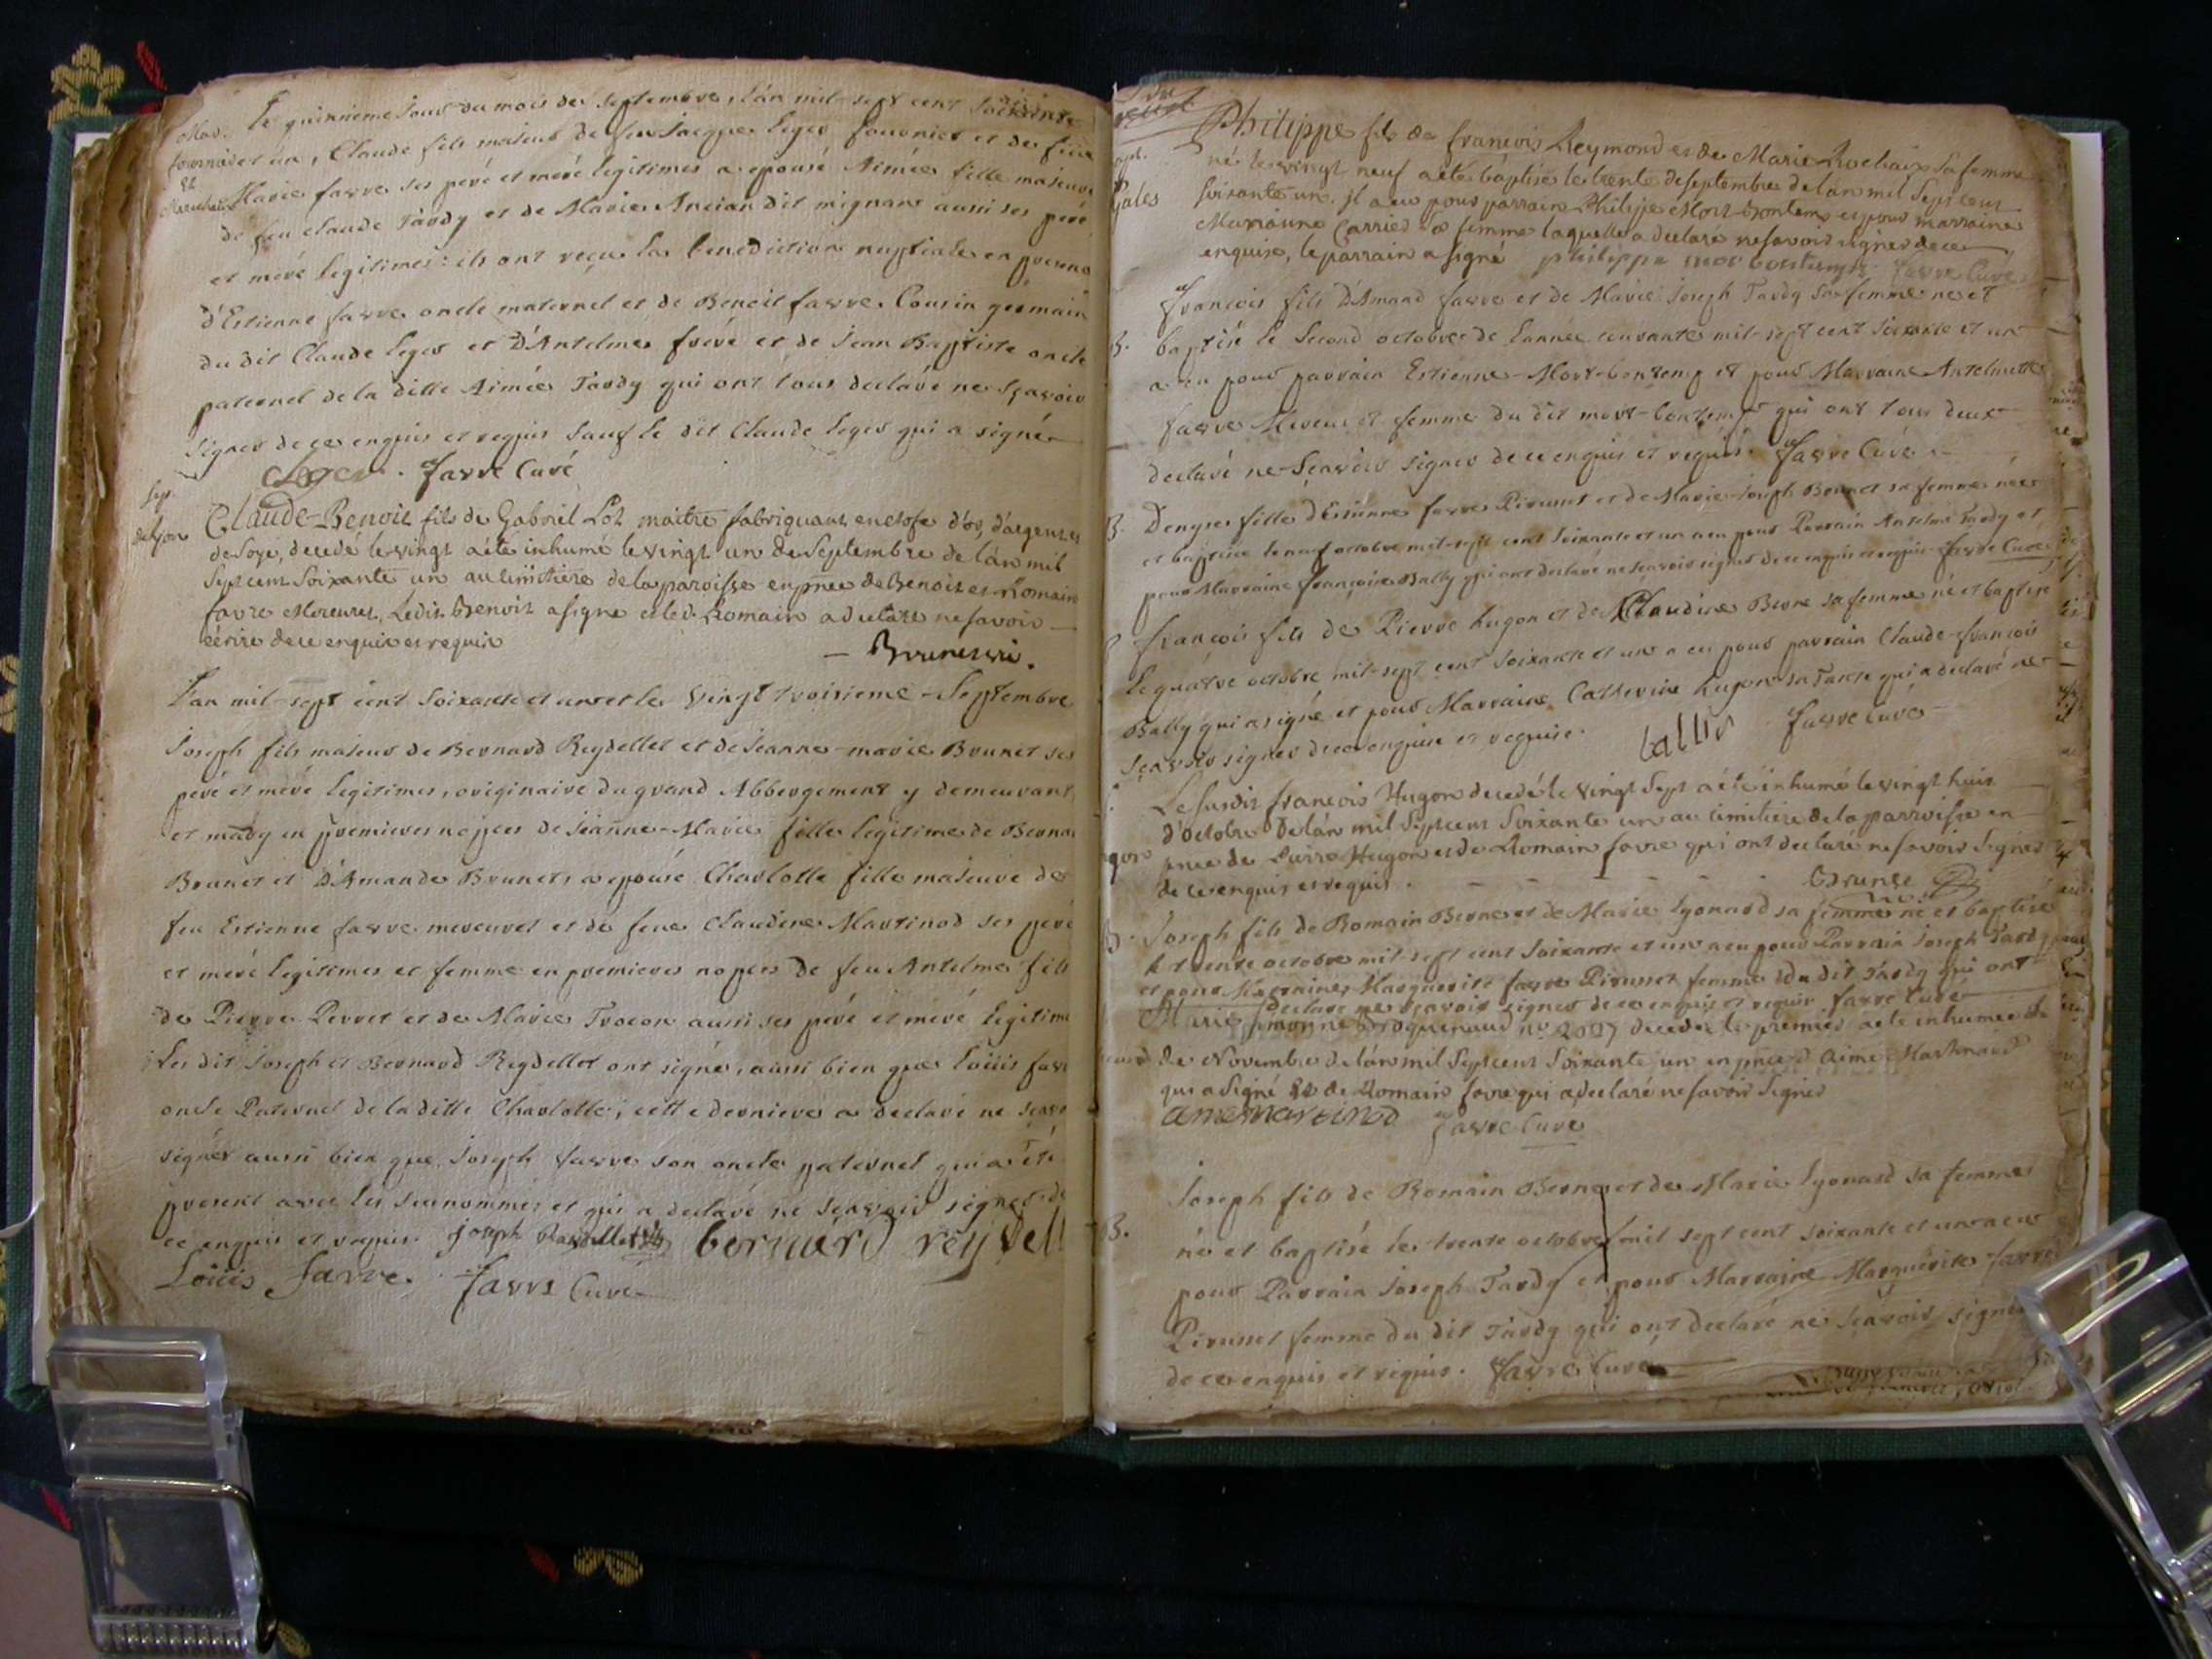 Mar.
Le quinzieme Jour du mois de septembre, l'an mil-sept cent soixante
et un, Claude fils majeur de feu Jacques Leger fournier et de feüe
Marie favre ses peré et meré legitimes a epousé Aimée fille majeure
de feu Claude Tardy et de Marie Ancian dit mignan aussi ses peré
et meré legitimes: ils ont reçu la benediction nuptiale en presence
d'Estienne favre oncle maternel et de Benoit favre Cousin germain
du dit Claude Leger et D'Antelme freré et de Jean Baptiste oncle
paternel de la ditte Aimée Tardy qui ont tous declaré ne sçavoir
signer de ce enquis et requis Sauf le dit Claude Leger qui a signé
Leger. favre Curé
Sep.
de lyon
Claude-Benoit fils de Gabriel Lot maitre fabriquant en etofe d'or, d'argent et
de Soye, decedé le vingt a été inhumé le vingt un de Septembre de l'an mil
Sept cent Soixante un au cimitiere de la paroisse en pnce de Benoit et Romain
favre Mereuret, Ledit Benoit a signé et led. Romain a declaré ne savoir
ecrire de ce enquis et requis
Brunet vic.
L'an mil-sept cent soixante et un et le vingt troisieme Septembre
Joseph fils majeur de Bernard Reydellet et de Jeanne-marie Brunet ses
peré et meré legitimes, originaire du grand Abbergement y demeurant
et mary en premieres nopces de Jeanne-Marie fille legitime de Bernard
Brunet et D'Amande Brunet, a epousé Charlotte fille majeure de
feu Estienne favre mereuret et de feue Claudine Martinod ses peré
et meré legitimes et femme en premieres nopces de feu Antelme fils
de Pierre Perret et de Marie Trocon aussi ses peré et meré legitimes
Les dit Joseph et Bernard Reydellet ont signé, aussi bien que Loüis favre
oncle Paternel de la ditte Charlotte; cette derniere a declaré ne sçavoir
signer aussi bien que Joseph favre son oncle paternel qui a été
present avec les surnommés et qui a declaré ne sçavoir signer de
ce enquis et requis. joseph Raydellet bernard reydell
Loüis favre. favre Curé
Philippe fils de francois Reymond et de Marie Rochaix sa femme
né le vingt neuf a été baptisé le trente de septembre de l'an mil Sept cent
Soixante un. il a eu pour parrain Philippe Mort-bontem et pour marraine
Marianne Carrier sa femme laquelle a declaré ne savoir signer de ce
enquise, le parrain a signé philippe mor bontemps favre Curé
B.
francois fils D'Amand favre et de Marie Joseph Tardy sa femme né et
baptisé le second octobre de l'année courante mil-sept cent soixante et un
a eu pour parrain Estienne-Mort-bontemp et pour Marraine Antelmette
favre Mereuret femme du dit mort-bontemp qui ont tous deux
declaré ne-sçavoir signer de ce enquis et requis. favre Curé
B.
Denyse fille d'Estienne favre Pirunet et de Marie-Joseph Bornet sa femme née
et baptisée le neuf octobre mil-sept cent soixante et un a eu pour Parrain Antelme Tardy et
pour Marraine françoise Bally qui ont declaré ne sçavoir signer de ce enquis et requis favre Curé
françois fils de Pierre hugon et de Claudine Berne sa femme né et baptisé
le quatre octobre mil-sept cent soixante et un a eu pour parrain Claude-françois
Bally qui a signé et pour Marraine Catherine hugon sa Tante qui a declaré ne
sçavoir signer de ce enquise et requise. ballis favre Curé
Le susdit francois Hugon decedé le vingt Sept a été inhumé le vingt huit
d'octobre de l'an mil Sept cent Soixante un au cimitiere de la parroisse en
pnce de Pierre Hugon et de Romain favre qui ont declaré ne savoir Signer
de ce enquis et requis. Brunet vic.
B.
Joseph fils de Romain Berne et de Marie Lyonard sa femme né et baptisé
le trente octobre mil sept cent soixante et un a eu pour Parrain Joseph Tardy
et pour Marraine Marguerite favre Pirunet femme du dit Tardy qui ont
declaré ne sçavoir signer de ce enquis et requis favre Curé
Marie decedée le premier a été inhumée le
de Novembre de l'an mil Sept cent Soixante un en pnce d'Aimé Martinaud
qui a Signé et de Romain favre qui a declaré ne savoir Signer
amé martinod favre Cure
B.
Joseph fils de Romain Berne et de Marie Lyonard sa femme
né et baptisé le trente octobre mil sept cent soixante et un a eu
pour Parrain Joseph Tardy et pour Marraine Marguerite favre
Pirunet femme du dit Tardy qui ont declaré ne sçavoir signer
de ce enquis et requis. favre Curé